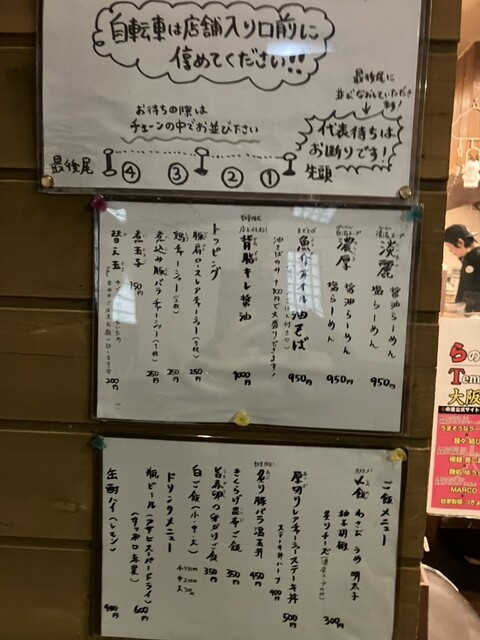 自転車は店舗入り口前に
停めてください!!
お待ちの際は
チェーンの中でお並び下さい
最後尾に
並びなおしていただき
ます!
代表待ちは
お断りです!
先頭
最後尾
④ ③ ② ①
淡麗 醤油らーめん
塩らーめん 950円
濃厚 醤油らーめん
塩らーめん 950円
魚介オイル油そば
950円
背脂キレ醤油
1000円
トッピング
豚肩ロースレアチャーシュー(3枚) 250円
鶏チャーシュー(3枚) 250円
煮込み豚バラチャーシュー(1枚) 250円
煮玉子 150円
替え玉
200円
ご飯メニュー
〆飯 わさび うめ 明太子
柚子胡椒
炙りチーズ
300円
厚切りレアチャーシューステーキ丼 500円
ステーキ丼ハーフ 400円
炙り豚バラ温玉丼 450円
きくらげ昆布ご飯 350円
旨赤卵の卵かけご飯 350円
白ご飯(小・中・大)
ドリンクメニュー
瓶ビール(アサヒスーパードライ)
(サッポロ赤星) 600円
缶酎ハイ(レモン) 400円
らの
Tem
大阪
うまそうなラー
MARCO